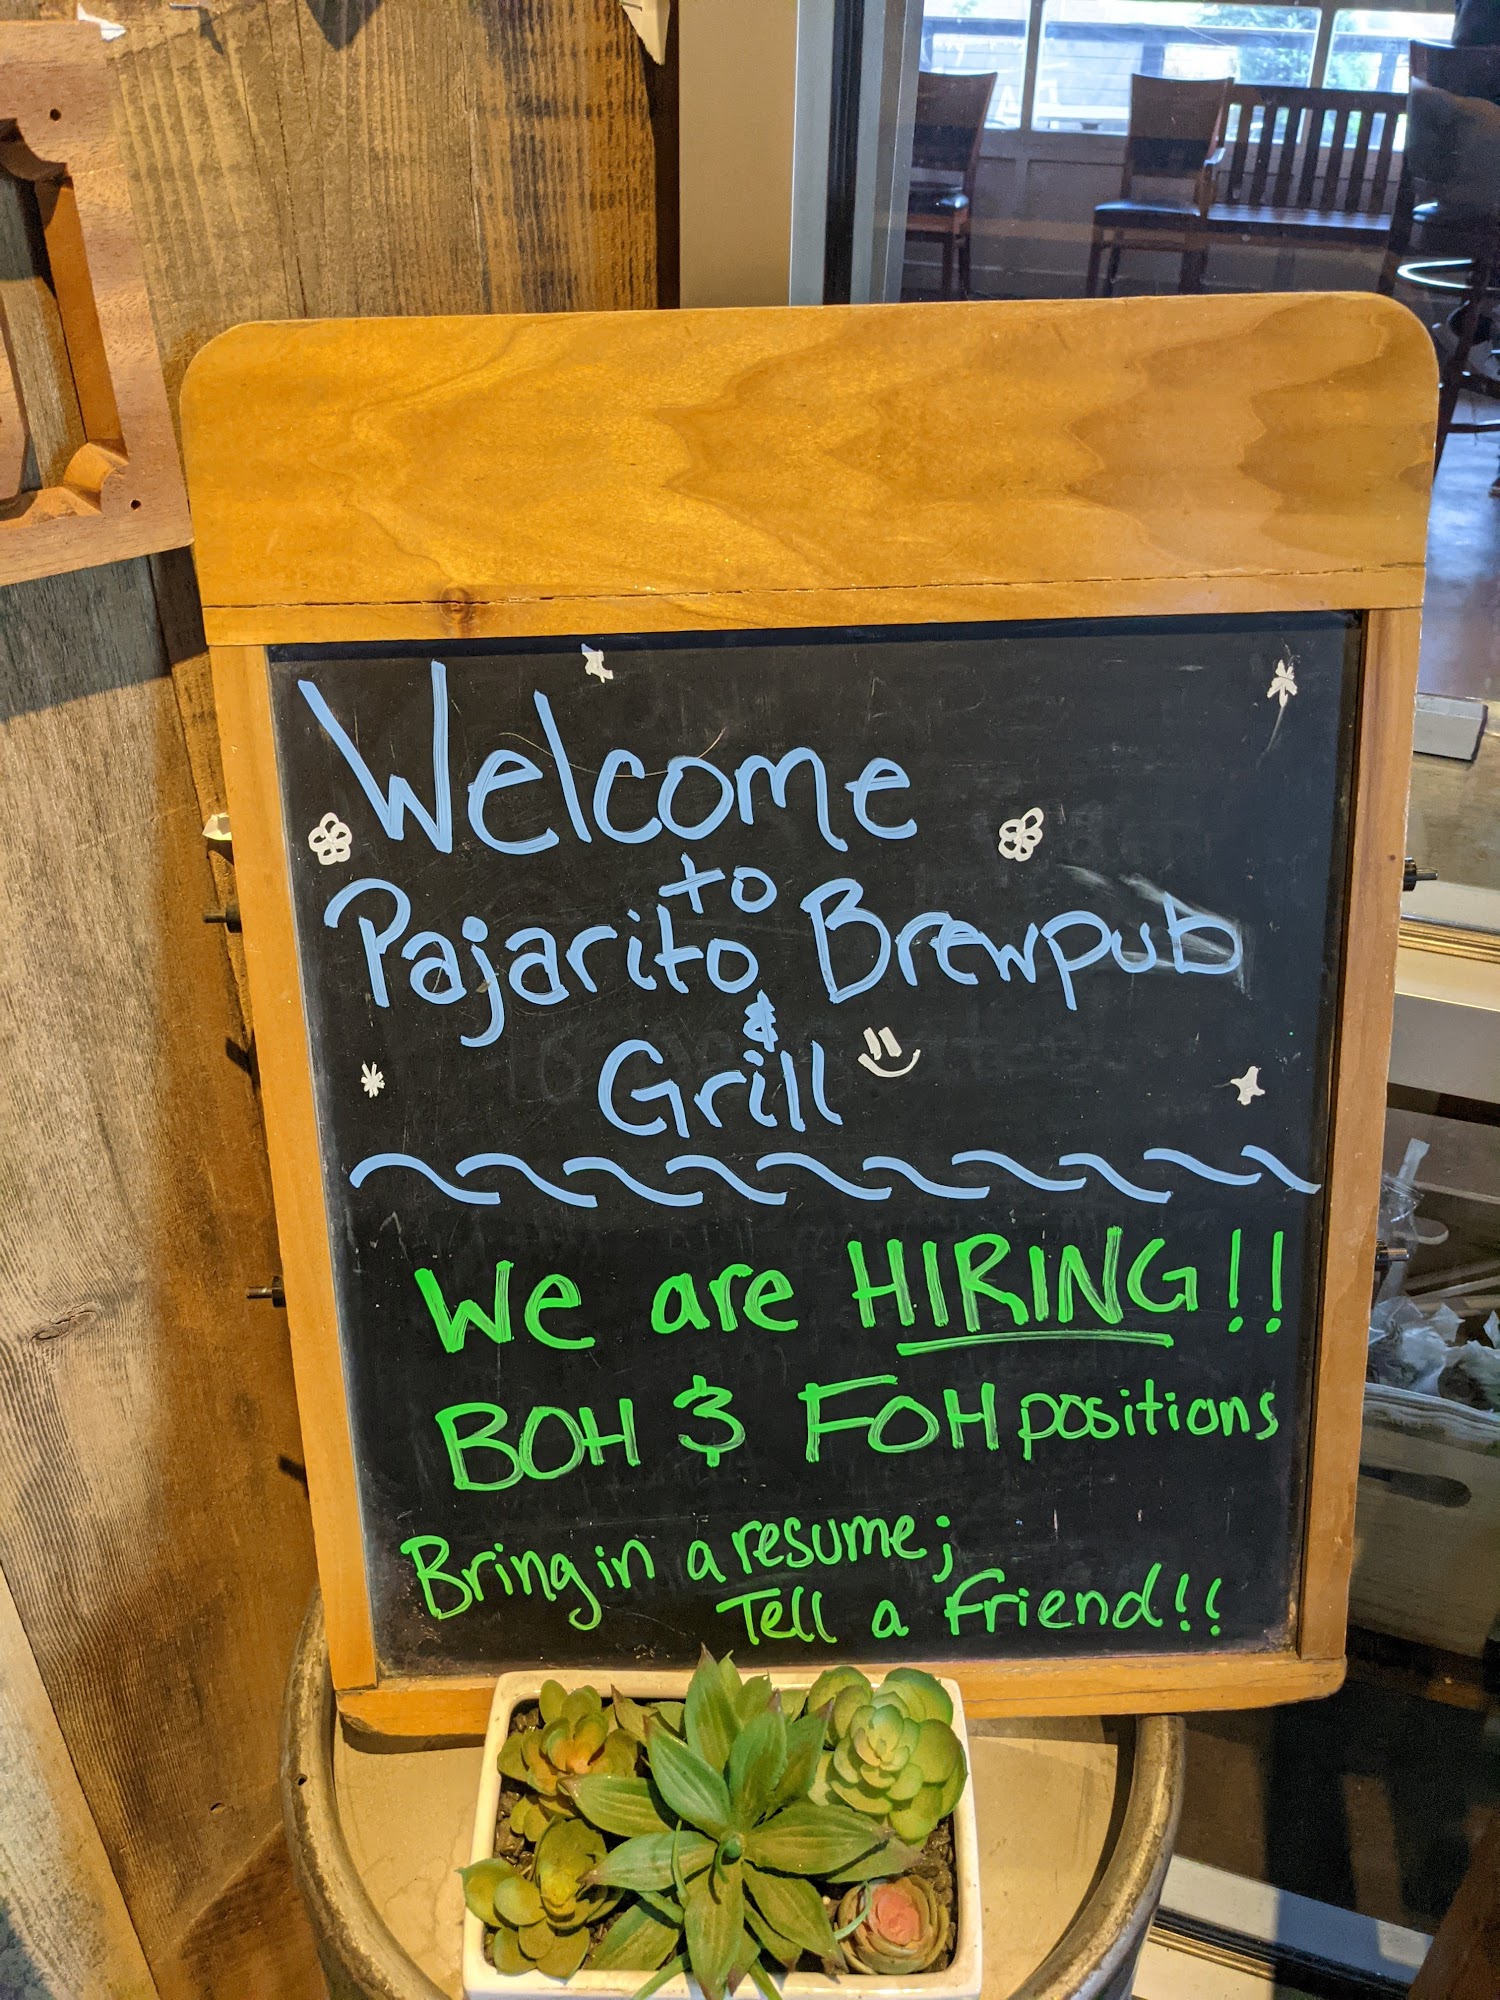 Welcome
to
Pajarito Brewpub
&
Grill
We are HIRING!!
BOH & FOH positions
Bring in a resume;
Tell a friend!!